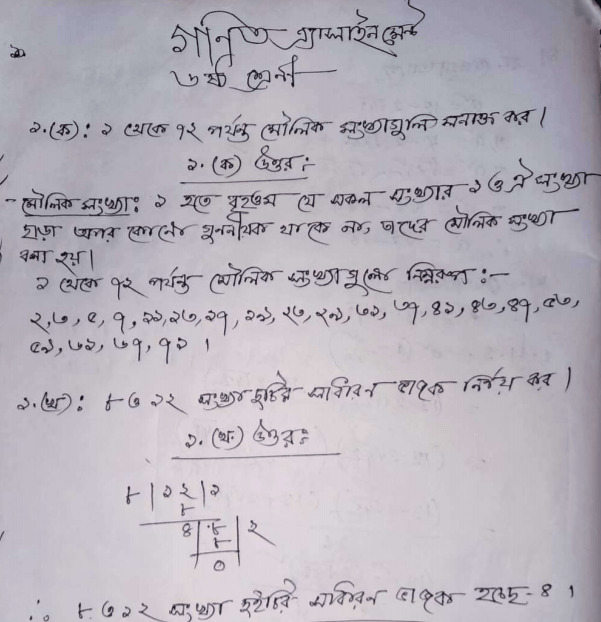 গণিত এ্যাসাইনমেন্ট
৬ষ্ঠ শ্রেণী
১.(ক): ১ থেকে ৭২ পর্যন্ত মৌলিক সংখ্যাগুলি সনাক্ত কর।
১.(ক) উত্তর:
- মৌলিক সংখ্যা: ১ হতে বৃহত্তম যে সকল সংখ্যার ১ ও ঐ সংখ্যা
ছাড়া অপর কোনো গুননীয়ক থাকে না, তাদের মৌলিক সংখ্যা
বলা হয়।
১ থেকে ৭২ পর্যন্ত মৌলিক সংখ্যা গুলো নিম্নরূপ :-
২,৩, ৫, ৭, ১১,১৩, ১৭, ১৯, ২৩, ২৯, ৩১, ৩৭, ৪১, ৪৩, ৪৭, ৫৩,
৫৯, ৬১, ৬৭, ৭১ ।
১.(খ): ৮ ও ১২ সংখ্যা দুটির সাধারন ভাজক নির্ণয় কর।
১. (খ) উত্তর:
৮ | ১২ | ১
৮
৪ | ৮ | ২
৮
০
∴ ৮ ও ১২ সংখ্যা দুইটির সাধারন ভাজক হচ্ছে- ৪ ।